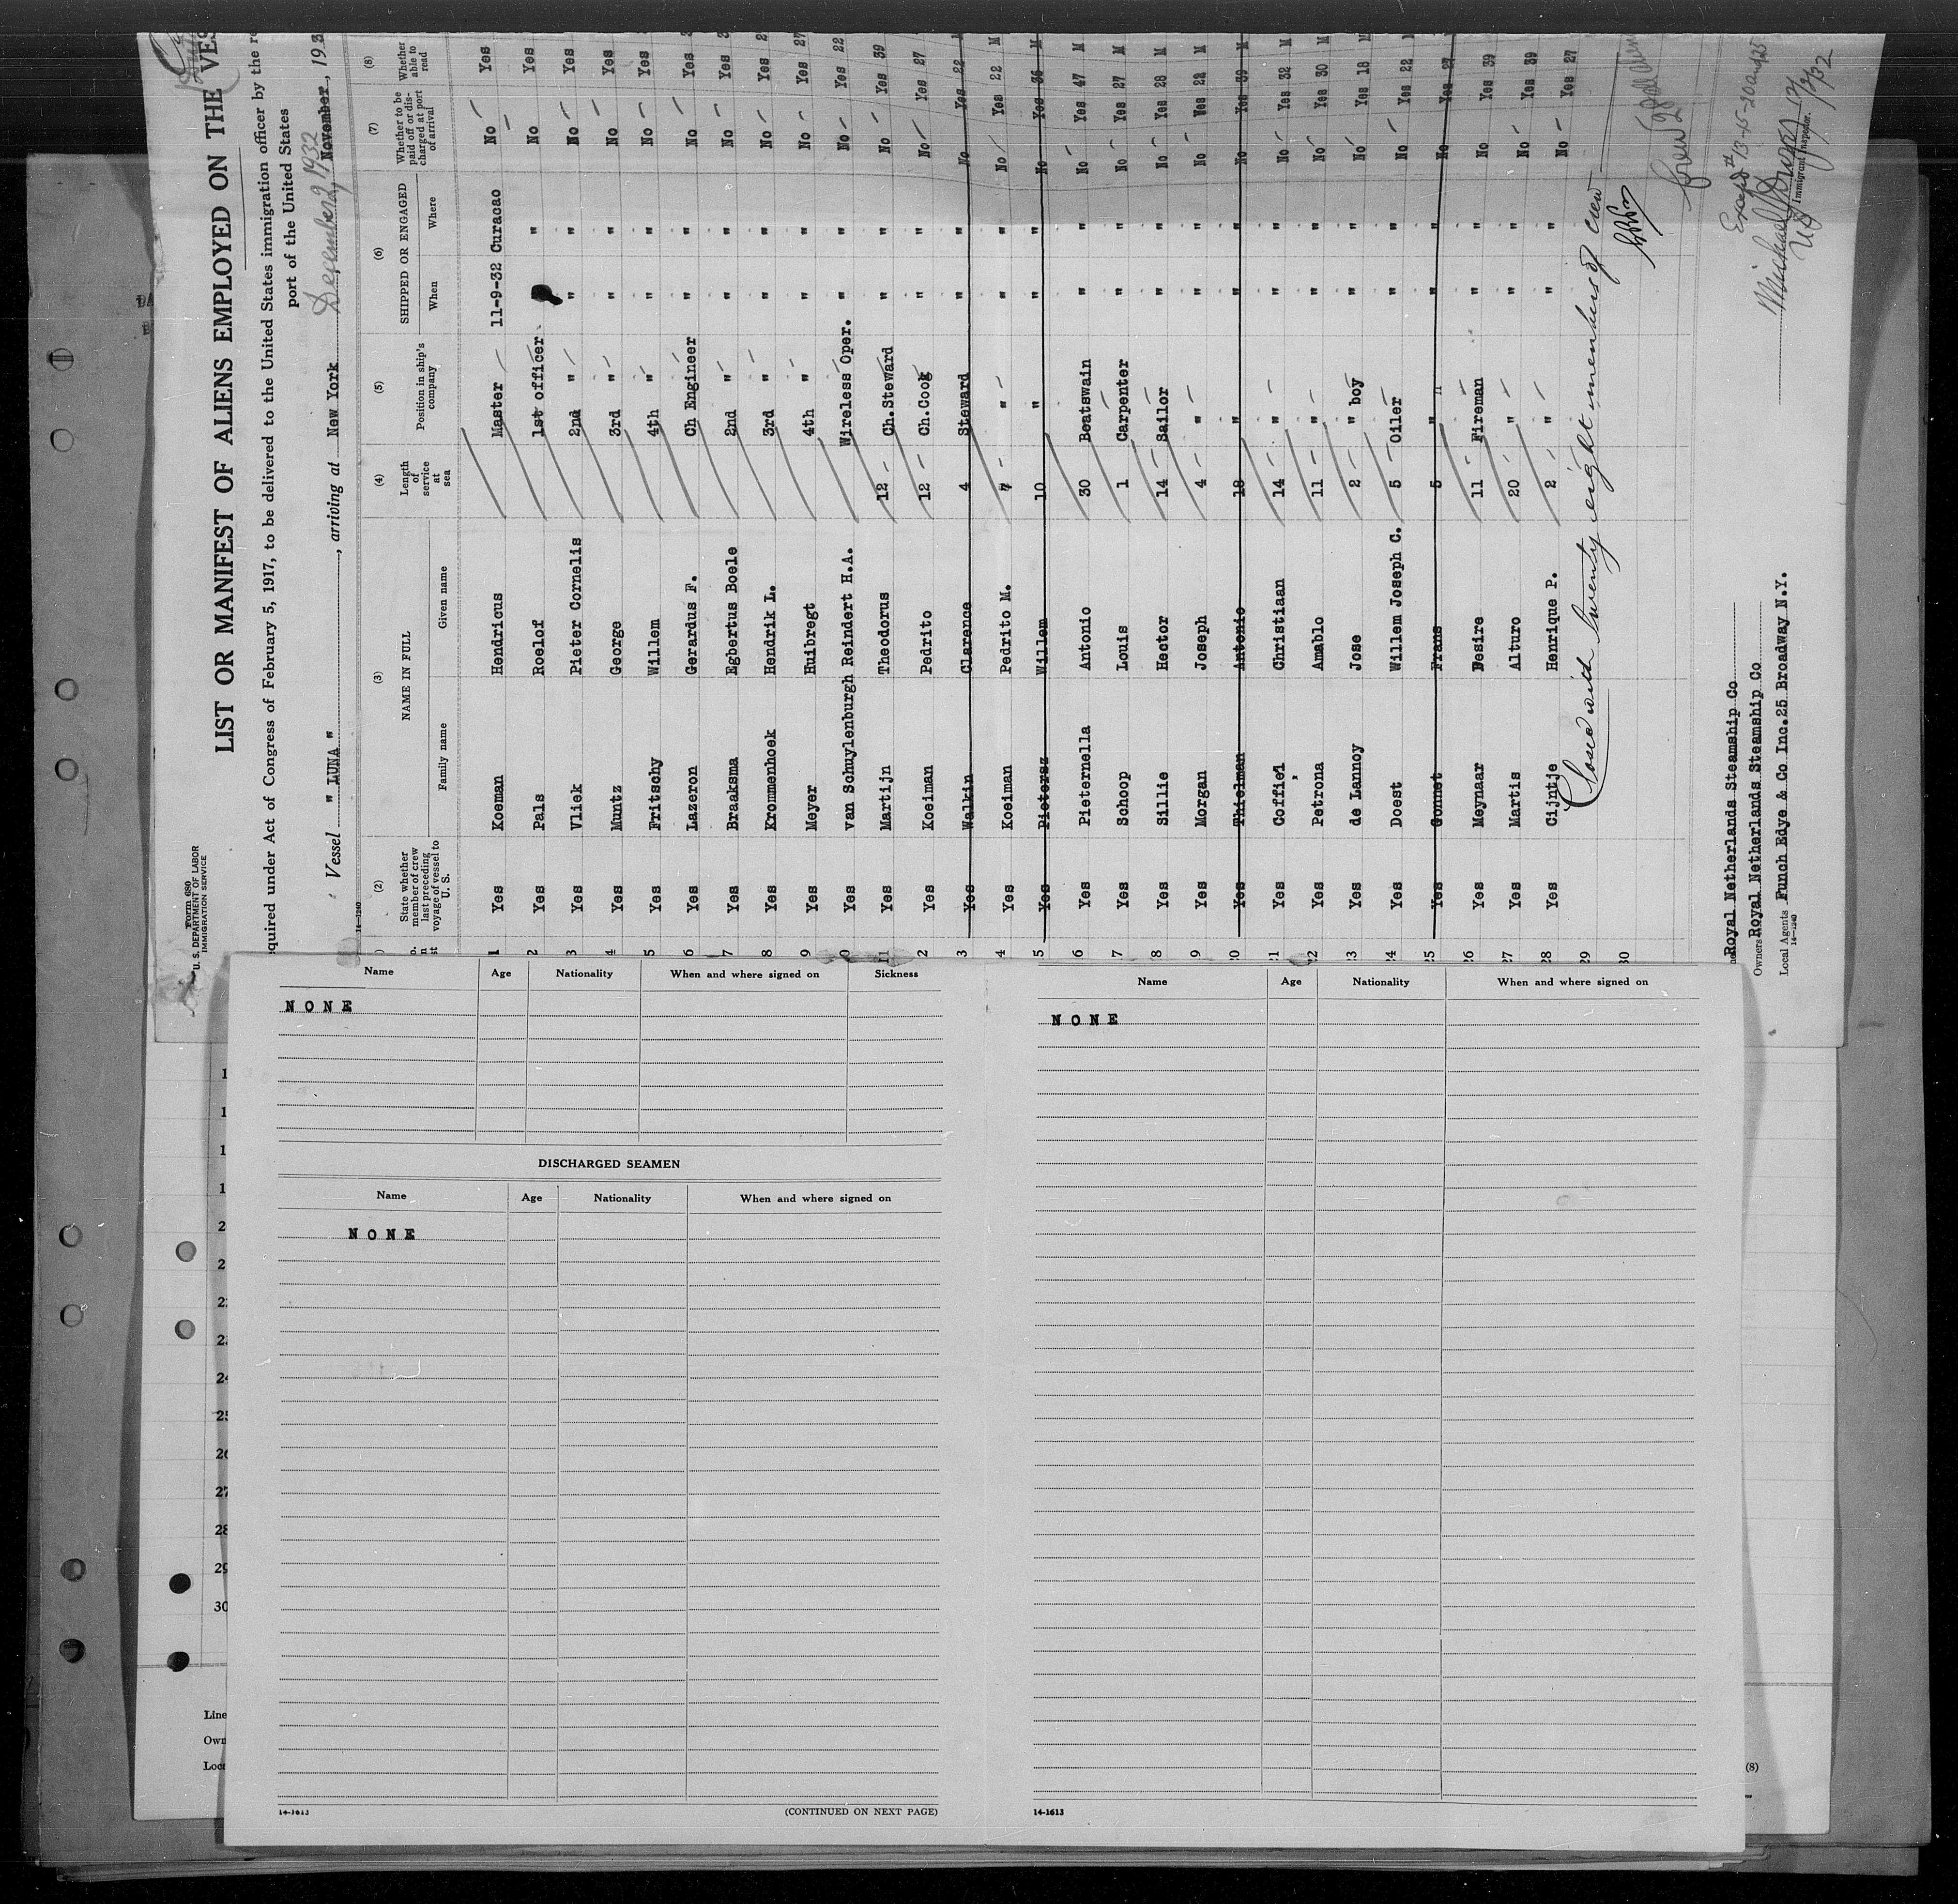 Form 680
U. S. DEPARTMENT OF LABOR
IMMIGRATION SERVICE
LIST OR MANIFEST OF ALIENS EMPLOYED ON THE VES
equired under Act of Congress of February 5, 1917, to be delivered to the United States immigration officer by the re
port of the United States
Vessel " LUNA ", arriving at New York December 2, 1932 November, 193
14-1240
(2) (3) (4) (5) (6) (7) (8)
State whether member of crew last preceding voyage of vessel to U. S.
NAME IN FULL
Family name Given name
Length of service at sea
Position in ship's company
SHIPPED OR ENGAGED
When Where
Whether to be paid off or discharged at port of arrival
Whether able to read
1 Yes Koeman Hendricus Master 11-9-32 Curacao No Yes
2 Yes Pals Roelof 1st officer " No Yes
3 Yes Vliek Pieter Cornelis 2nd " " " No Yes
4 Yes Muntz George 3rd " " " No Yes
5 Yes Fritschy Willem 4th " " " No Yes
6 Yes Lazeron Gerardus F. Ch Engineer " " No Yes
7 Yes Braaksma Egbertus Boele 2nd " " " No Yes
8 Yes Krommenhoek Hendrik L. 3rd " " " No Yes 2
9 Yes Meyer Huibregt 4th " " " No Yes 27
0 Yes van Schuylenburgh Reindert H.A. Wireless Oper. " " No Yes 22
11 Yes Martijn Theodorus 12 Ch.Steward " " No Yes 39
2 Yes Koeiman Pedrito 12 Ch.Cook " " No Yes 27
3 Yes Walkin Clarence 4 Steward " " No Yes 22 M
4 Yes Koeiman Pedrito M. " " " No Yes 22 M
5 Yes Pietersz Willem 10 " " " No Yes 36 M
6 Yes Pieternella Antonio 30 Boatswain " " No Yes 47 M
7 Yes Schoop Louis 1 Carpenter " " No Yes 27 M
8 Yes Sillie Hector 14 Sailor " " No Yes 28 M
9 Yes Morgan Joseph 4 " " " No Yes 22 M
20 Yes Thielman Antonio 18 " " " No Yes 39 M
21 Yes Coffie Christiaan 14 " " " No Yes 32 M
22 Yes Petrona Amablo 11 " " " No Yes 30 M
23 Yes de Lannoy Jose 2 " boy " " No Yes 18 M
24 Yes Doest Willem Joseph C. 5 Oiler " " No Yes 22
25 Yes Gonnet Frans 5 " " " No Yes 27
26 Yes Meynaar Desire 11 Fireman " " No Yes 39
27 Yes Martis Alturo 20 " " " No Yes 39
28 Yes Cijntje Henrique P. 2 " " " No Yes 27
29 Closed with twenty eight members of crew
30
Crew 28
Except # 13-15-20 and 25
12/2/32
U S Immigrant Inspector.
Royal Netherlands Steamship Co
Owners Royal Netherlands Steamship Co
Local Agents Funch Edye & Co Inc.25 Broadway N.Y.
14-1240
Name Age Nationality When and where signed on Sickness
NONE
DISCHARGED SEAMEN
Name Age Nationality When and where signed on
NONE
14-1613 (CONTINUED ON NEXT PAGE)
Name Age Nationality When and where signed on
NONE
14-1613
1
1
1
1
2
2
2
2
24
25
26
27
28
29
30
Line
Own
Loca
(8)